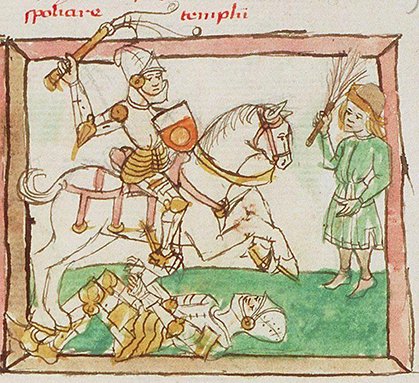 spoliare templu